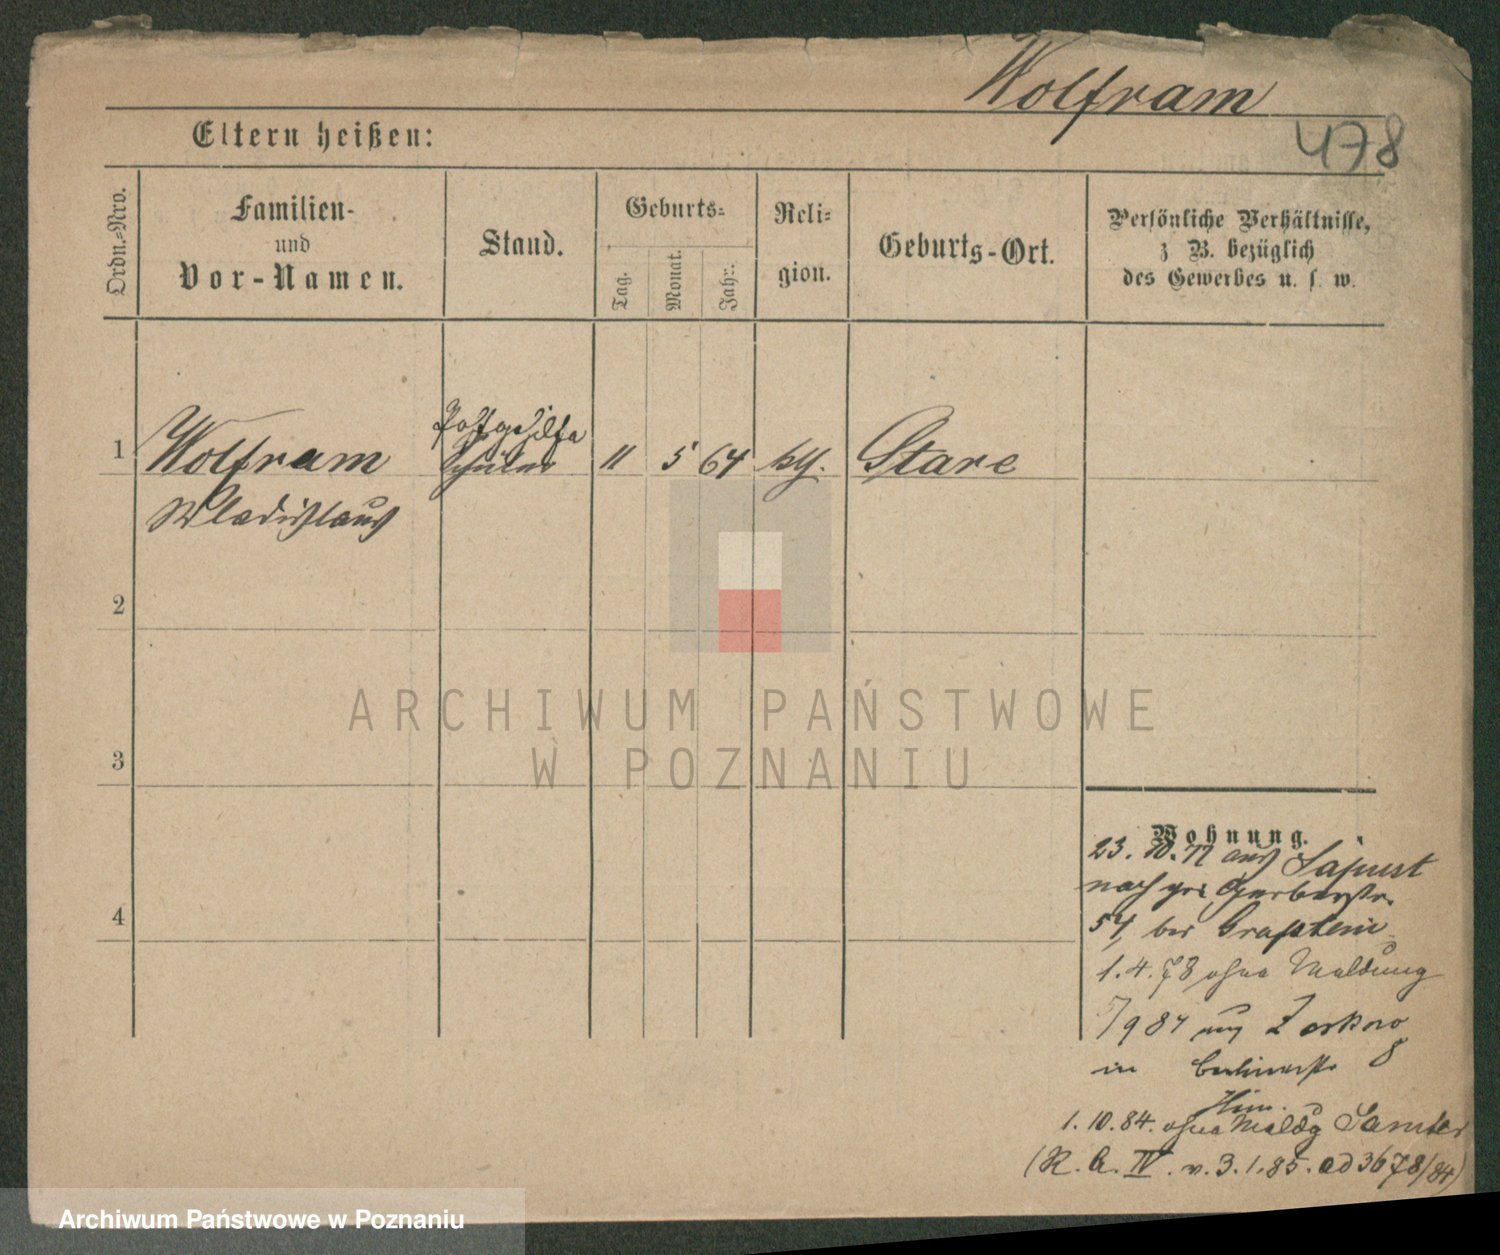 Wolfram
478
Eltern heißen:
Ordn.=Nro.
Familien-
und
Vor-Namen.
Stand.
Geburts=
Tag.
Monat.
Jahr.
Reli=
gion.
Geburts-Ort.
Persönliche Verhältnisse,
z B. bezüglich
des Gewerbes u. s. w.
Postgehilfe
1 Wolfram Schüler 11 5 64 kth. Stare
Wladislaus
2
3
4
ARCHIWUM PAŃSTWOWE
W POZNANIU
Wohnung.
23. 10. 77 aus
nach gr. Gerberstr.
54, bei
1. 4. 78 ohne Meldung
7/9 84 aus Zerkow
in Berlinerstr 8
1. 10. 84. ohne Meldg Samter
(R. A. IV. v. 3. 1. 85. ad 3678/84)
Archiwum Państwowe w Poznaniu